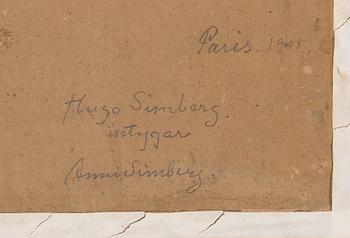 Paris.
Hugo Simberg
intygar
Anni Simberg.